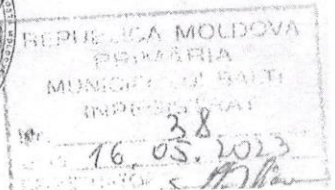 REPUBLICA MOLDOVA
PRIMĂRIA
MUNICIPIULUI BĂLŢI
INREGISTRAT
Nr. 38
16. 05. 2023